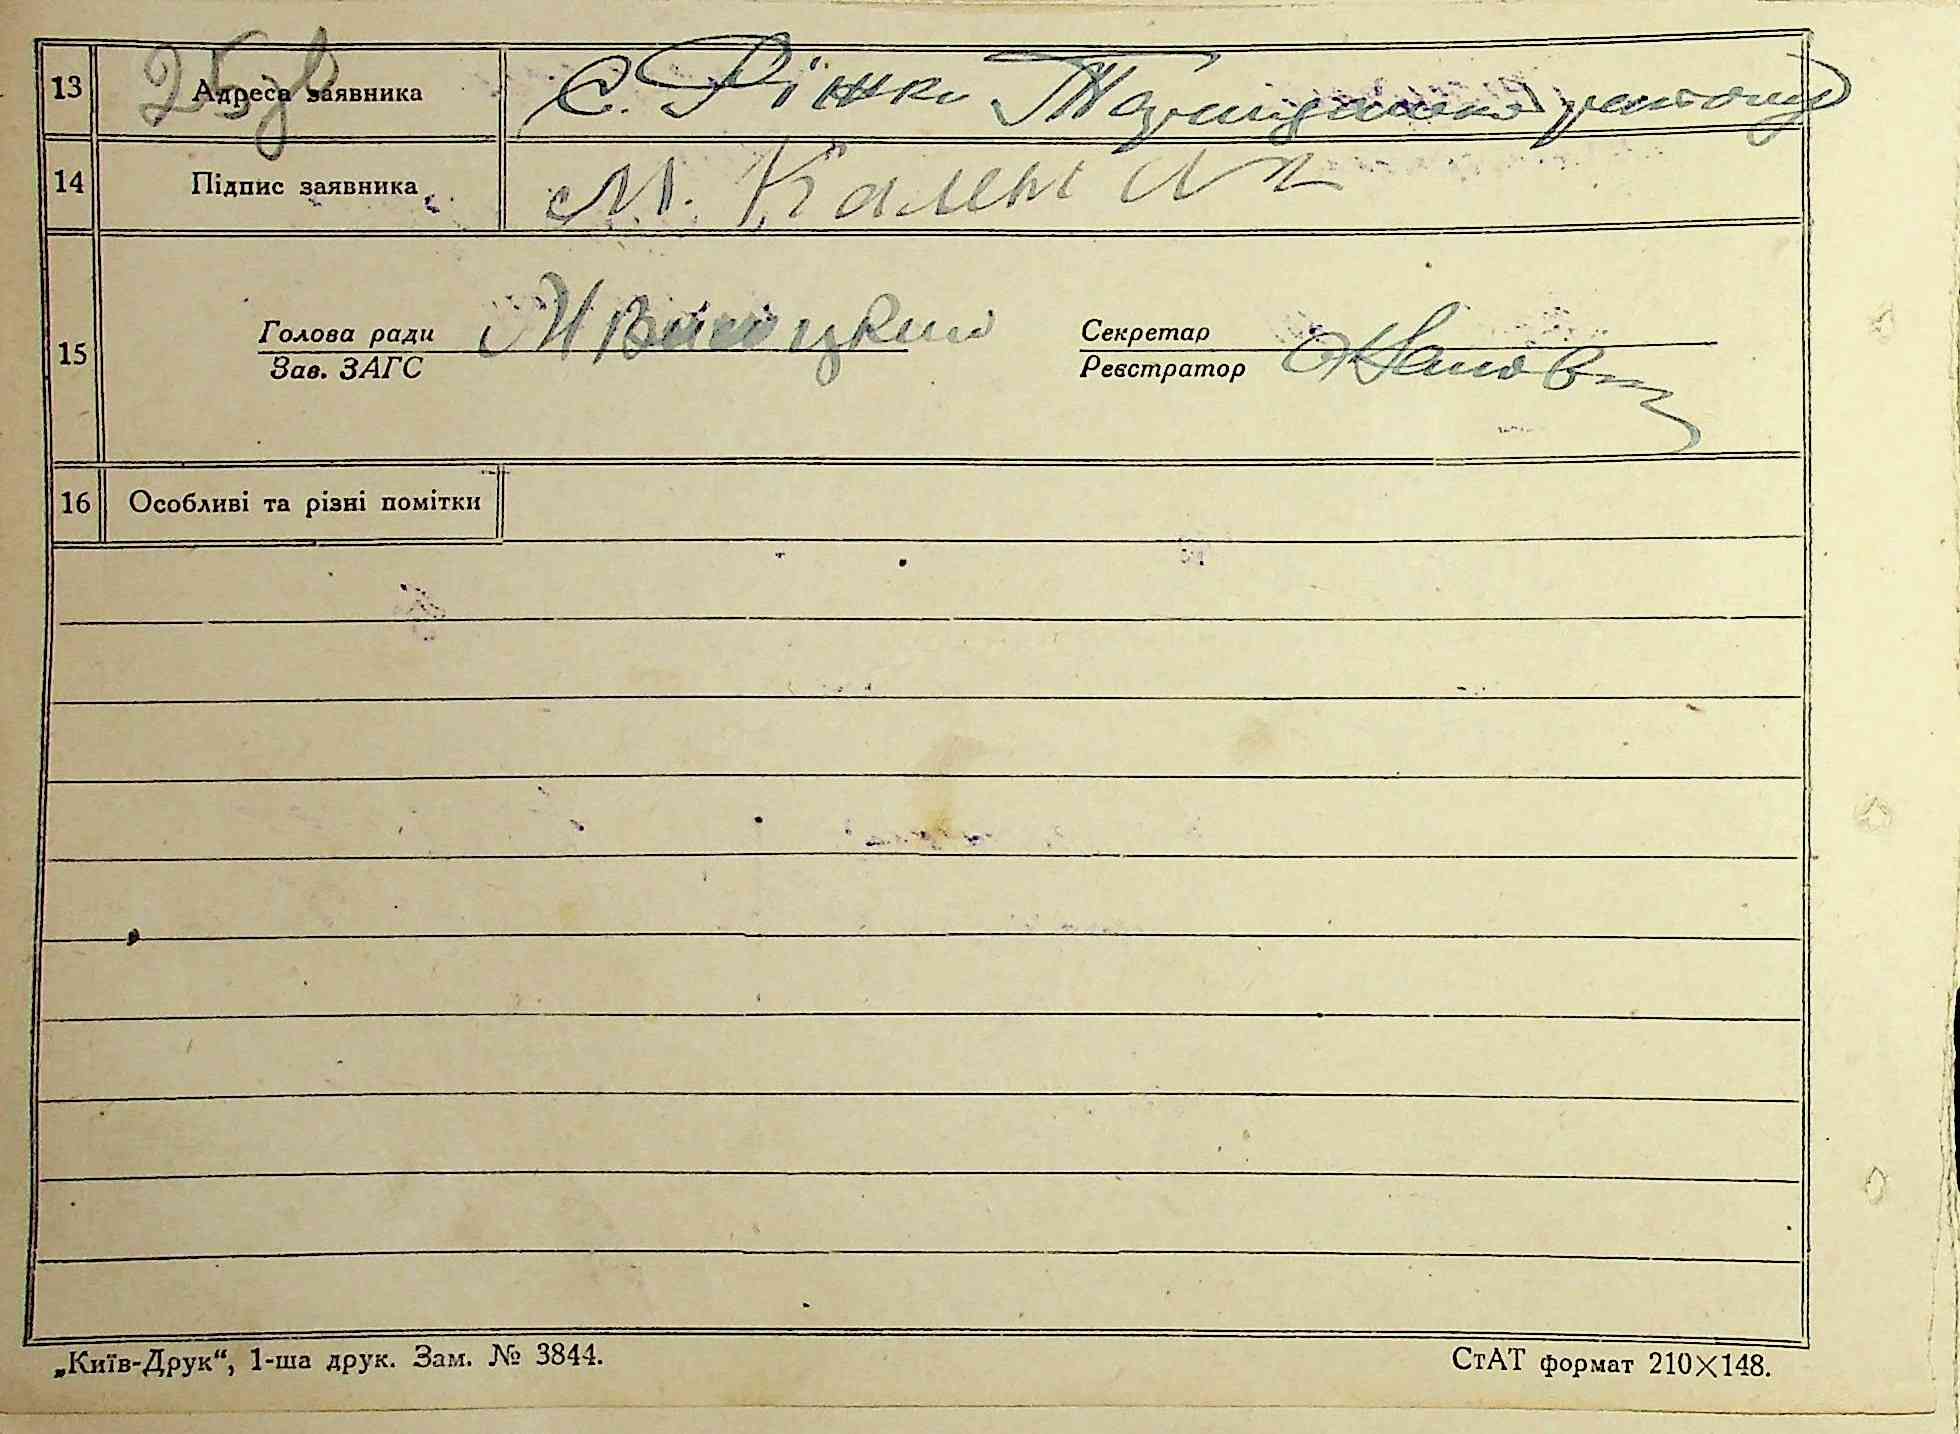 25 зв
13 Адреса заявника с. Ріжки Таращанського району
14 Підпис заявника М.
15 Голова ради Секретар
Зав. ЗАГС Реєстратор
16 Особливі та різні помітки
„Київ-Друк“, 1-ша друк. Зам. № 3844. СтАТ формат 210×148.